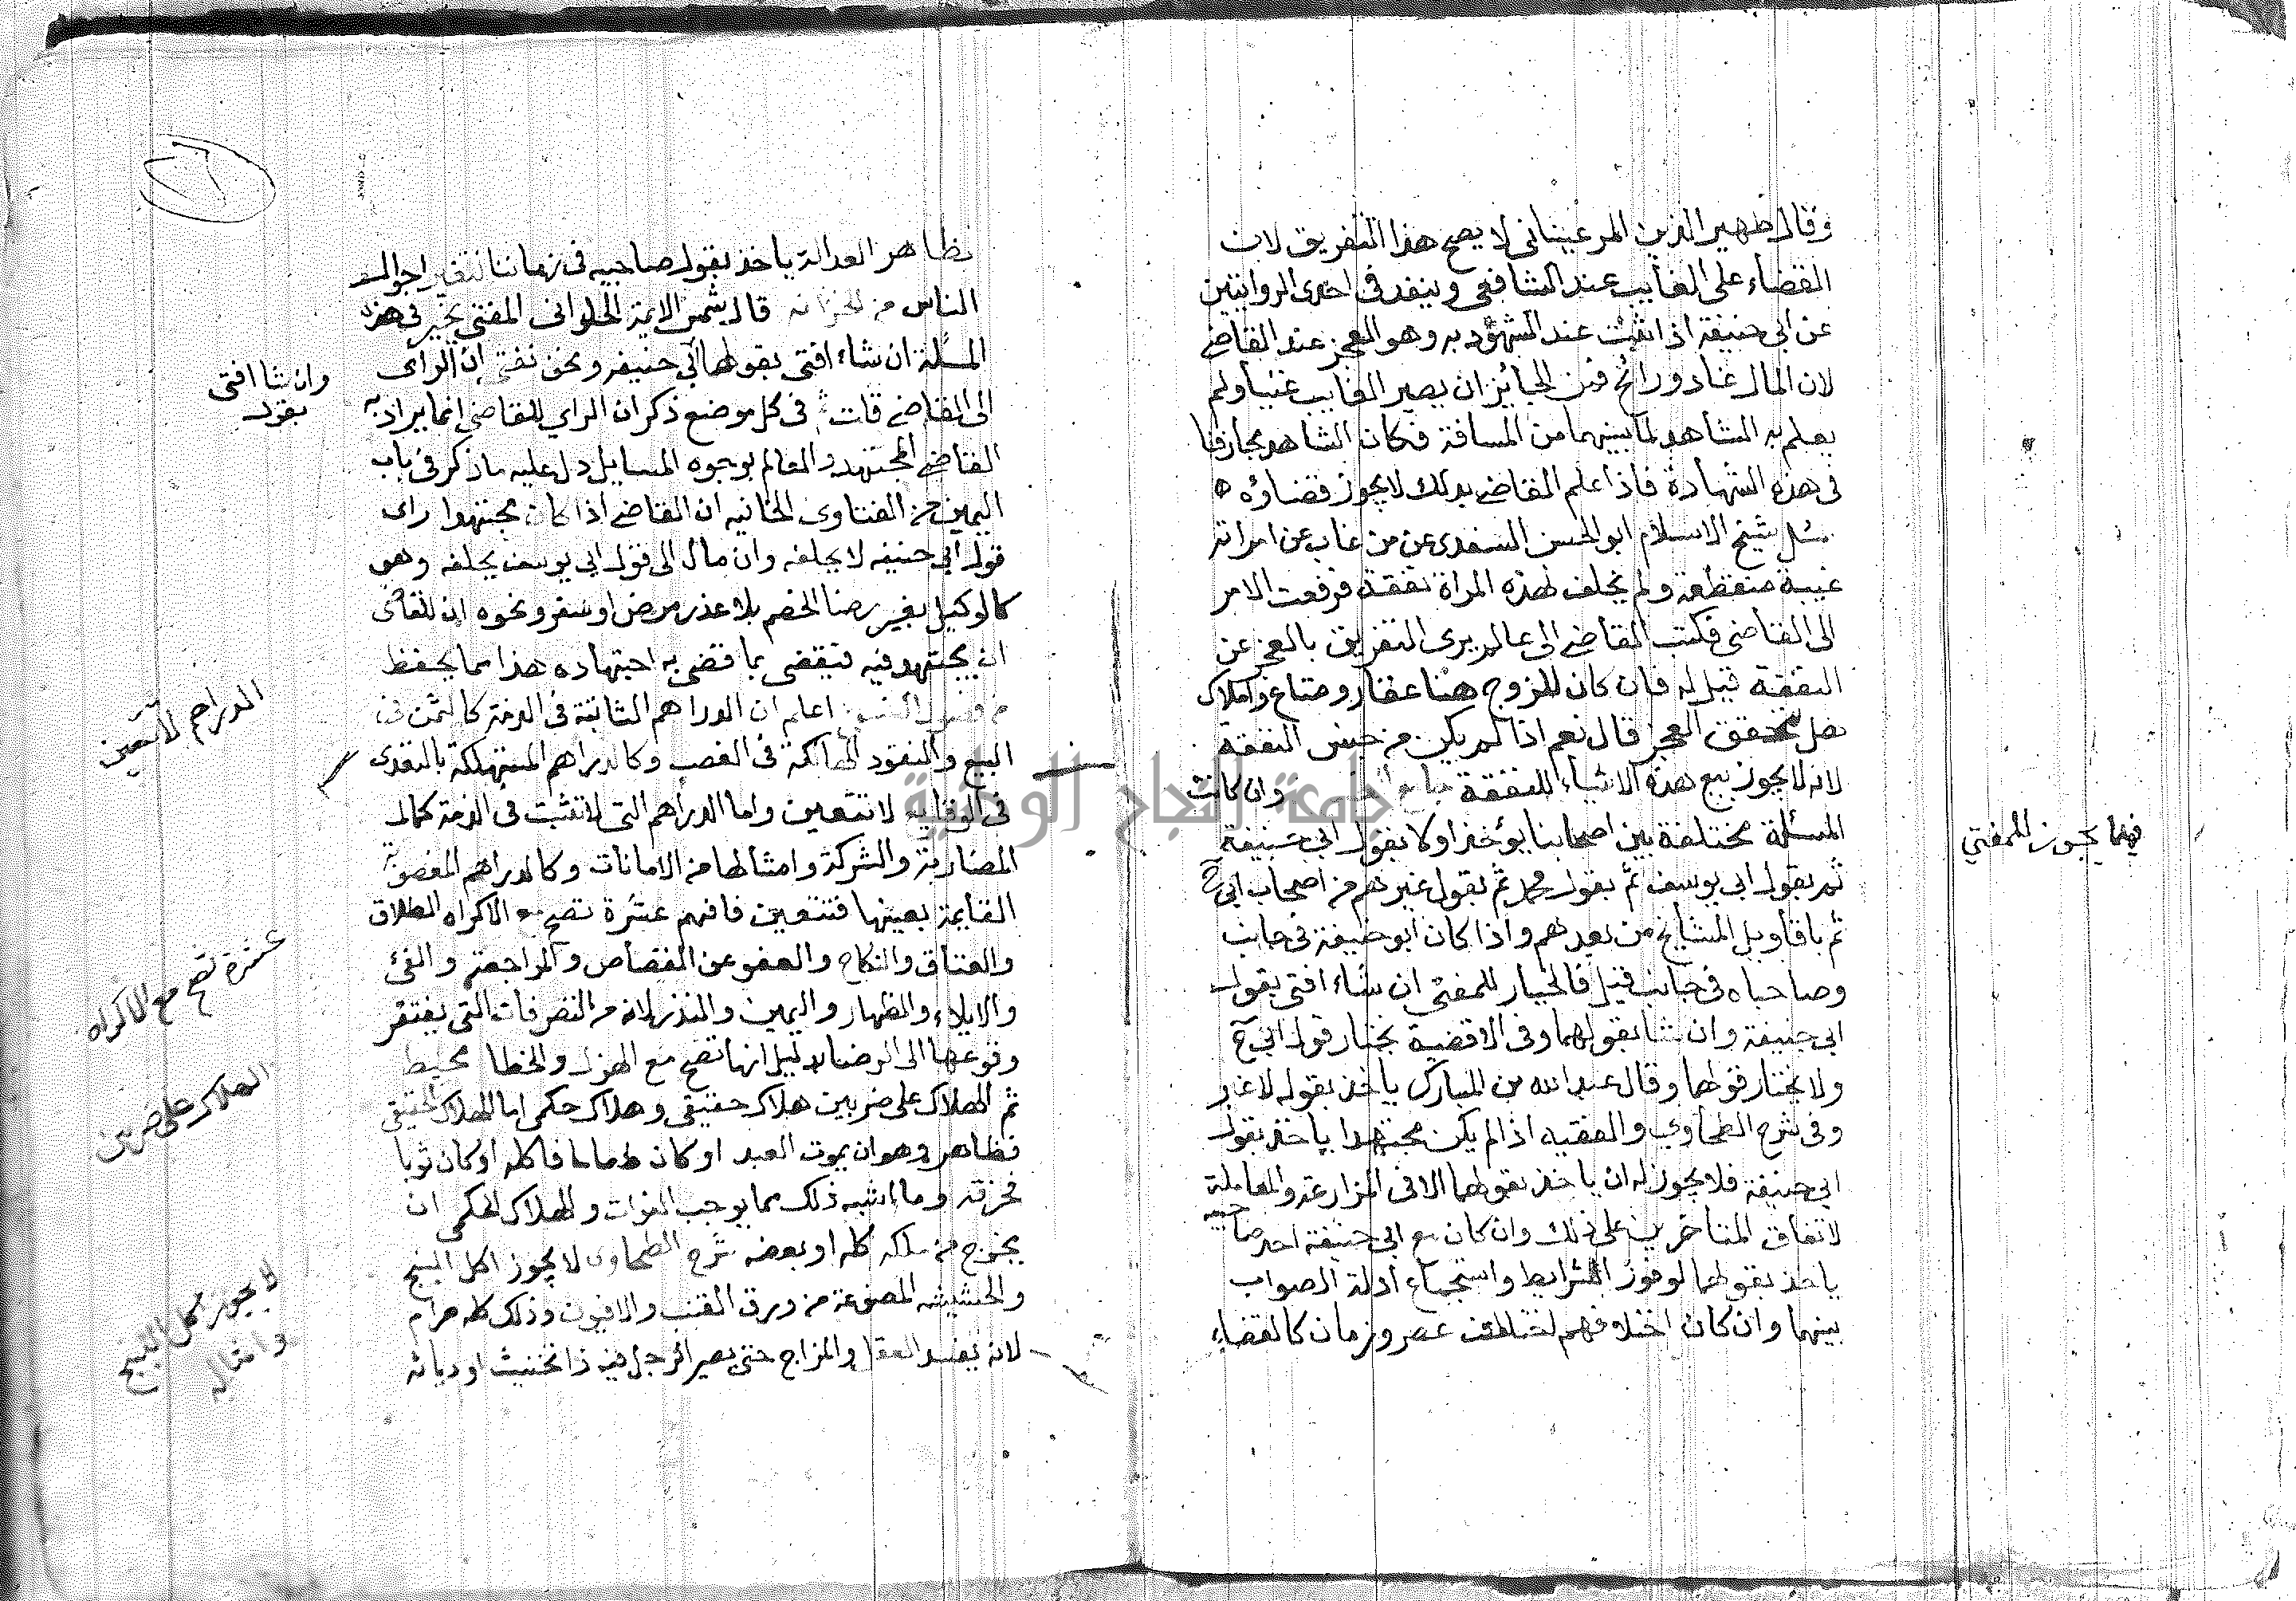 وقال ظهير الدين المرغيناني لا يصح هذا التفريق لان
القضاء على الغايب عند الشافعي وينفد في احدى الروايتين
عن ابي حنيفة اذا ثبت عند المشهود به وهو العجز عند القاضي
لان المال غاد ورائح فمن الجائز ان يصير الغايب غنيا ولم
يعلم به الشاهد لما بينهما من المسافة فكان الشاهد مجازفا
في هذه الشهادة فاذا علم القاضي بذلك لا يجوز قضاؤه
سئل شيخ الاسلام ابو الحسن السغدي عن من غاب عن امراته
غيبة منقطعة ولم يخلف لهذه المراة نفقة فرفعت الامر
الى القاضي فكتب القاضي الى عالم يرى التفريق بالعجز عن
النفقة قيل له فان كان للزوج هنا عقار ومتاع واملاك
هل تحقق العجز قال نعم اذا لم يكن من جنس النفقة
لانه لا يجوز بيع هذه الاشياء للنفقة وان كانت
المسئلة مختلفة بين اصحابنا يؤخذ اولا بقول ابي حنيفة
ثم بقول ابي يوسف ثم بقول محمد ثم بقول غيرهم من اصحاب ابي ح
ثم باقاويل المشايخ من بعدهم واذا كان ابو حنيفة في جانب
وصاحباه في جانب قيل فالخيار للمفتي ان شاء افتى بقول
ابي حنيفة وان شا بقولهما وفي الاقضية يختار قول ابي ح
ولا يختار قولهما وقال عبد الله بن المبارك ياخذ بقوله لا غير
وفي شرح الطحاوي والفقيه اذا لم يكن مجتهدا ياخذ بقول
ابي حنيفة فلا يجوز له ان ياخذ بقولهما الا في المزارعة والمعاملة
لاتفاق المتاخرين على ذلك وان كان مع ابي حنيفة احد صاحبيه
ياخذ بقولهما لوفور الشرايط واستجماع ادلة الصواب
بينهما وان كان اختلافهم اختلاف عصر وزمان كالقضاء
فيما يجوز للمفتي
بظاهر العدالة ياخذ بقول صاحبيه في زماننا لتغير احوال
الناس من الخزانه قال شمس الايمة الحلواني المفتي يخير في هذه
المسئلة ان شاء افتى بقولهما ابي حنيفه ونحن نفتي ان الراى
الى القاضي قلت في كل موضع ذكر ان الراي للقاضي انما يراد به
القاضي المجتهد والعالم بوجوه المسايل دل عليه ما ذكر في باب
اليمين من الفتاوى الخانيه ان القاضي اذا كان مجتهدا راى
قول ابي حنيفه لا يحلفه وان مال الى قول ابي يوسف يحلفه وهو
كالوكيل بغير رضا الخصم بلا عذر مرض او سفر ونحوه ان للقاضى
ان يجتهد فيه فيقضى بما قضى به اجتهاده هذا مما يحفظ
اعلم ان الدراهم الثابتة في الذمة كالثمن في
البيع والنقود الهالكة في الغصب وكالدراهم المستهلكة بالتعدى
في الوقايه لا تتعين واما الدراهم التي لا تثبت في الذمة كمال
المضاربة والشركة وامثالها من الامانات وكالدراهم المغصوبة
القايمة بعينها فتتعين فافهم عشرة تصح مع الاكراه الطلاق
والعتاق والنكاح والعفو عن القصاص والمراجعة والفئ
والايلاء والظهار واليمين والنذر لانه من التصرفات التي يفتقر
وقوعها الى الرضا بدليل انها تصح مع الهزل والخطا محيط
ثم الهلاك على ضربين هلاك حقيقي وهلاك حكمي اما الهلاك الحقيقي
فظاهر وهو ان يموت العبد او كان طعاما فاكله او كان ثوبا
فخرقه وما اشبه ذلك مما يوجب الفوات والهلاك الحكمي ان
يخرج من ملكه كله او بعضه شرح الطحاوى لا يجوز اكل البنج
والحشيشه المصنوعة من ورق القنب والافيون وذلك كله حرام
لانه يفسد العقل والمزاج حتى يصير الرجل فيه ذا تخنيث او دياثه
وان شا افتى
بقول
الدراهم لا تتعين
عشرة تصح مع الاكراه
الهلاك على ضربين
لا يجوز اكل البنج
وامثاله
جامعة النجاح الوطنية